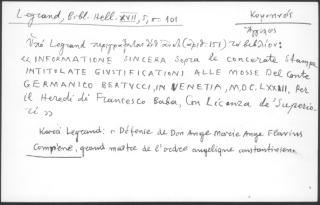 Legrand, Bibl. Hell. XVII, 5, σ. 101
Κομνηνός
Άγγελος
Ὑπό Legrand περιγράφεται (ἀριθ. 151) τό βιβλίον:
« INFORMATIONE SINCERA Sopra le concerate Stampa
INTITOLATE GIUSTIFICATIONI ALLE MOSSE Del Conte
GERMANICO BEATUCCI, IN VENETIA, M.DC.LXXIII, Per
il Heredi di Francesco Baba, Con Licenza de' Superio-
ri »
Κατά Legrand: « Défense de Don Ange Marie Ange Flavius
Comnène, grand maître de l'ordre angélique constantinien